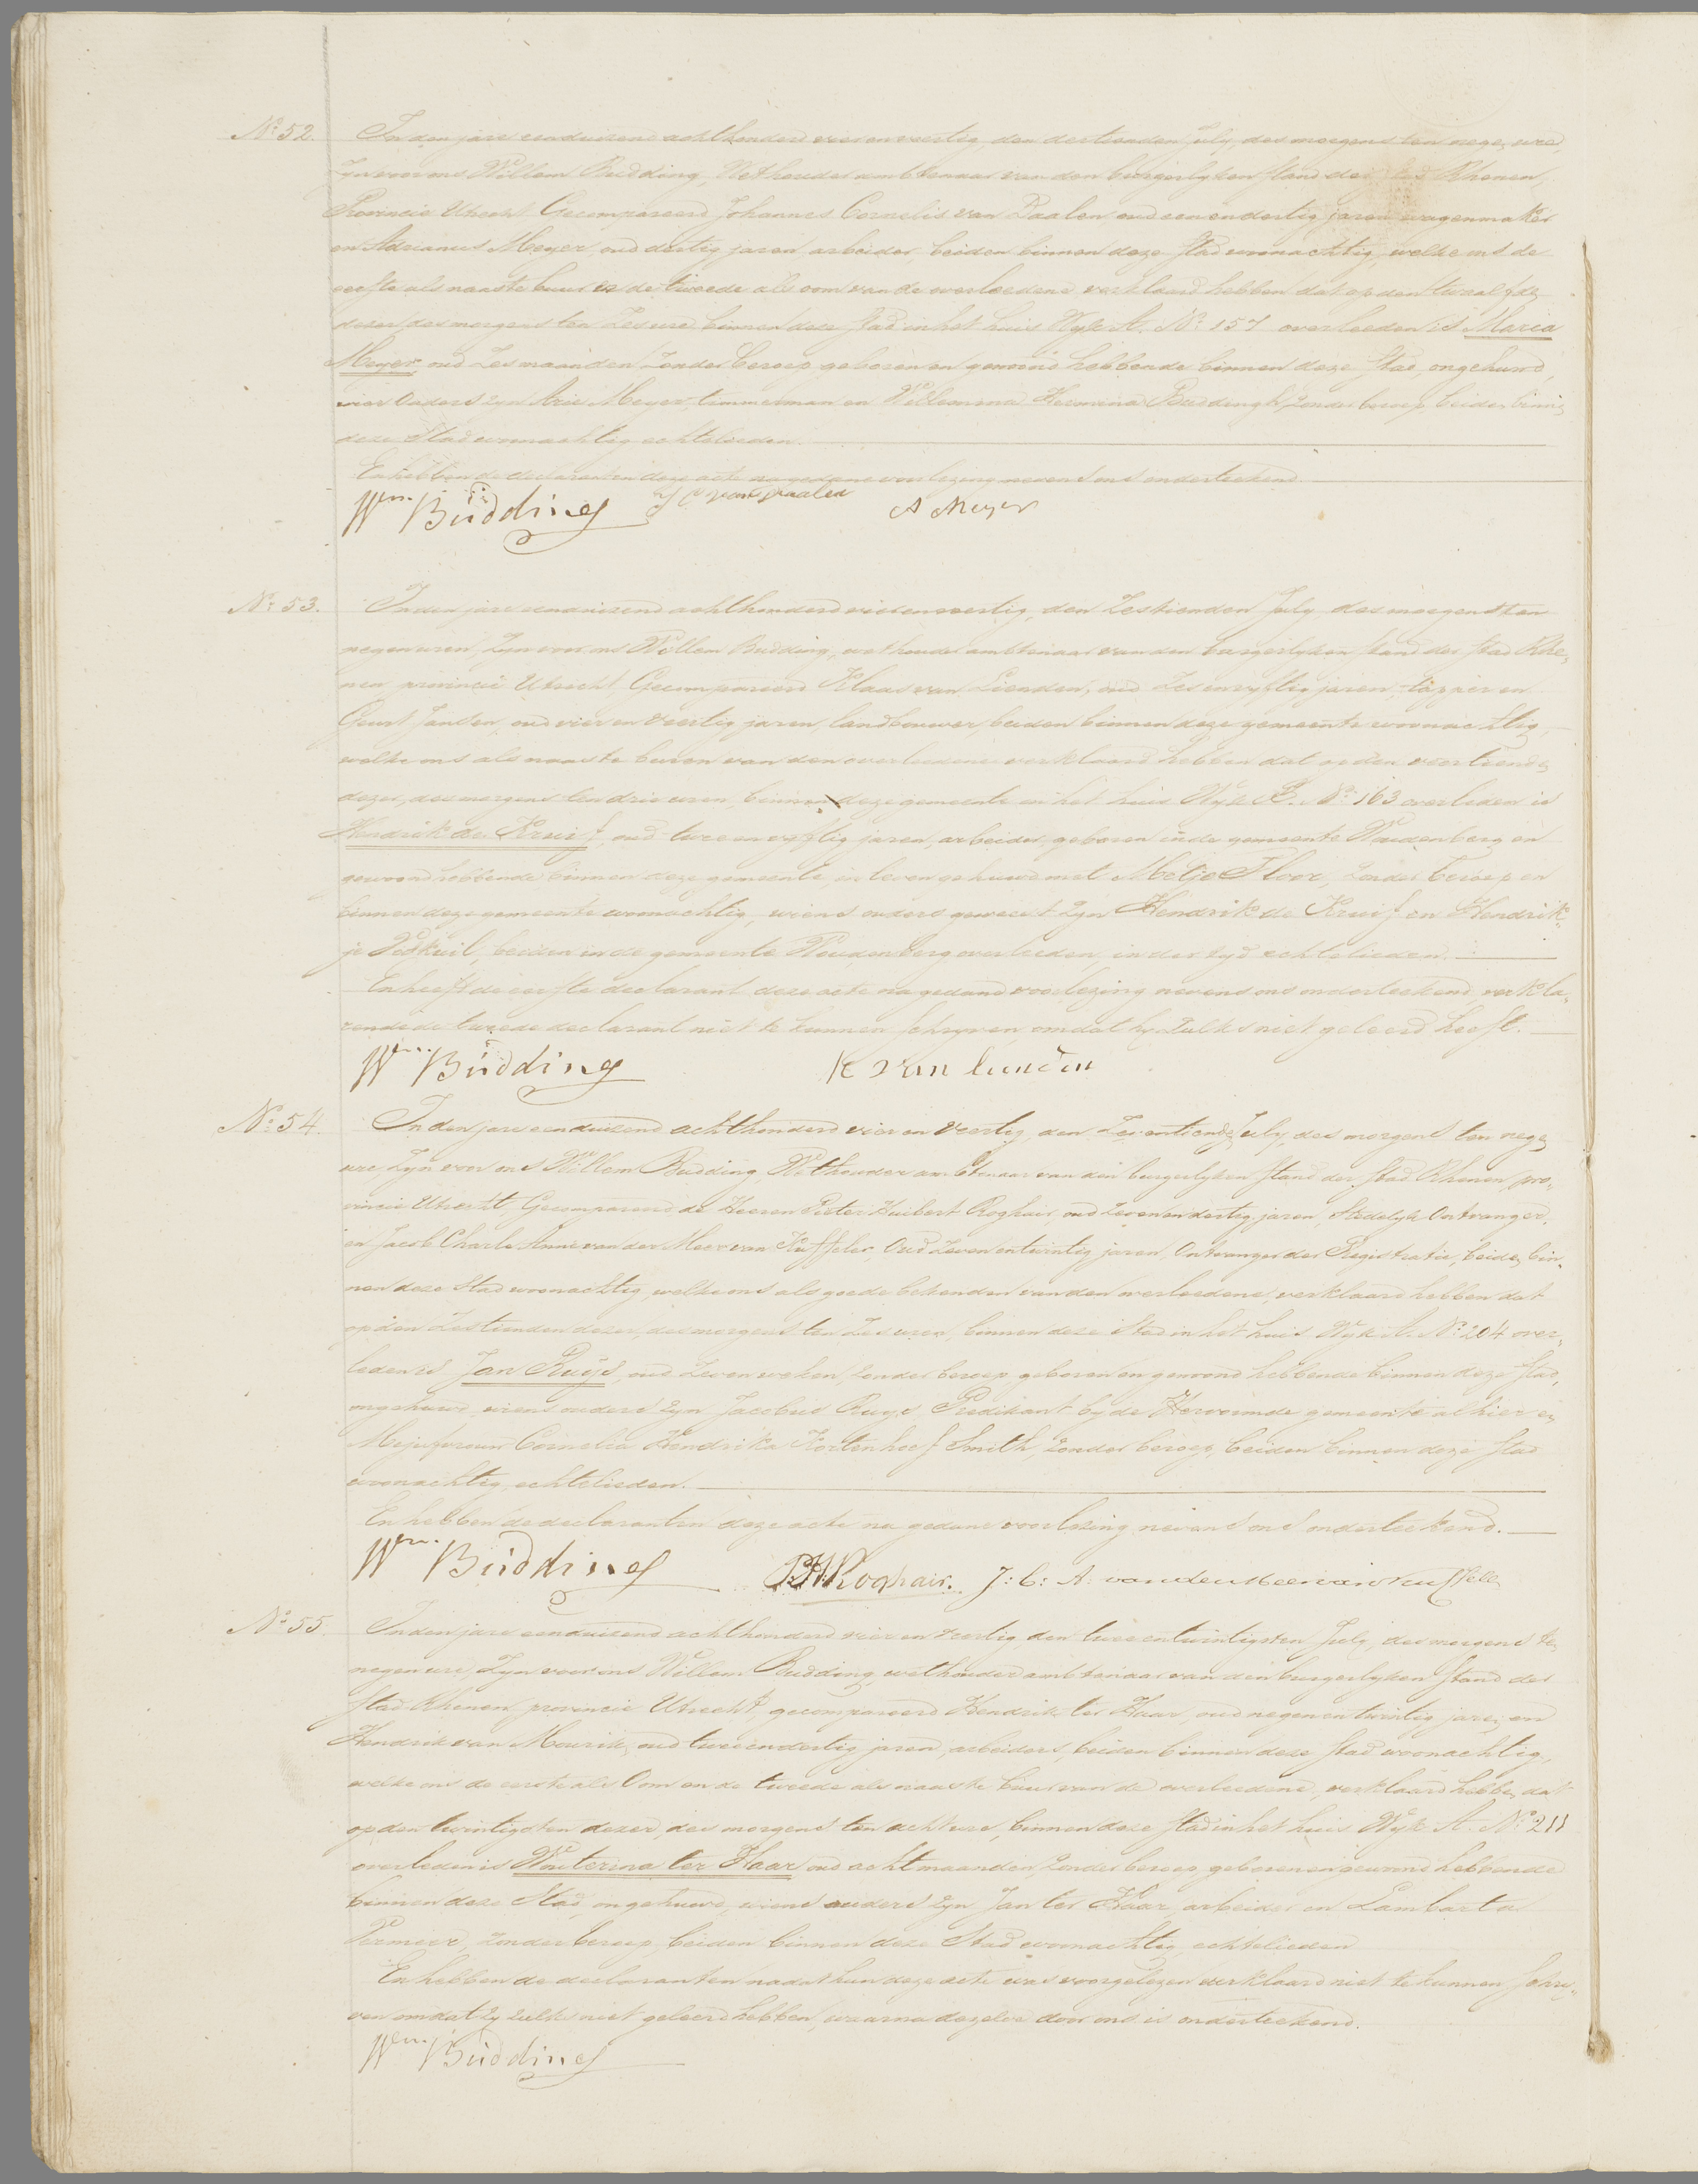 No 52. In den jare eenduizend achthonderd vier en veertig, den dertienden July, des morgens ten negen ure,
Zyn voor ons Willem Budding, Wethouder ambtenaar van den burgerlyken stand der stad Rhenen,
Provincie Utrecht Gecompareerd Johannes Cornelis van Daalen, oud een en dertig jaren wagenmaker
en Adrianus Meyer, oud dertig jaren arbeider beiden binnen deze stad woonachtig, welke ons de
eerste als naaste buur en de tweede als oom van de overledene verklaard hebben dat op den twaalfden
dezer, des morgens ten Zes ure binnen deze stad in het huis Wyk A. No 157 overleeden is Maria
Meyer, oud Zes maanden Zonder beroep geboren en gewoond hebbende binnen deze stad, ongehuwd,
wier Ouders zyn Arie Meyer, timmerman en Willemina Hermina Buddingh, zonder beroep, beiden binnen
deze Stad woonachtig echtelieden.
En hebben de declaranten deze acte na gedane voorlezing nevens ons onderteekend
Wm Büdding J C van Daalen A Meyer
No 53. In den jare eenduizend achthonderd vier en veertig, den Zestienden July, des morgens ten
negen uren, Zyn voor ons Willem Budding, wethouder ambtenaar van den burgerlyken stand der stad Rhe,
nen provincie Utrecht, Gecompareerd Klaas van Lienden, oud Zes en vyftig jaren, tapper en
Geurt Jansen, oud vier en veertig jaren, landbouwer, beiden binnen deze gemeente woonachtig,
welke ons als naaste buren van den overledene verklaard hebben dat op den veertienden
dezer, des morgens ten drie uren, binnen deze gemeente in het huis Wyk B. No 163 overleden is
Hendrik de Kruif, oud twee en vyftig jaren, arbeider, geboren in de gemeente Woudenberg en
gewoond hebbende binnen deze gemeente, in leven gehuwd met Metje Floor, Zonder beroep en
binnen deze gemeente woonachtig, wiens ouders geweest zyn Hendrik de Kruif en Hendrik,,
je Veskuil, beiden in de gemeente Woudenberg overleeden, in der tyd echtelieden.
En heeft de eerste declarant deze acte na gedane voorlezing nevens ons onderteekend, verkla,
rende de tweede declarant niet te kunnen schryven, omdat hy Zulks niet geleerd heeft.
Wm Büdding K van lienden
No 54. In den jare eenduizend achthonderd vier en veertig, den Zeventienden July, des morgens ten negen
ure, Zyn voor ons Willem Budding, Wethouder ambtenaar van den burgerlyken stand der stad Rhenen, pro,
vincie Utrecht, Gecompareerd de Heeren Pieter Huibert Roghair, oud Zeven en dertig jaren, Stedelyk Ontvanger,
en Jacob Charle Anne van der Meer van Kuffeler, Oud Zeven en twintig jaren, Ontvanger der Registratie, beiden bin,
nen deze Stad woonachtig, welke ons als goede bekenden van den overleedene, verklaard hebben dat
op den Zestienden dezer, des morgens ten Zes uren, binnen deze Stad in het huis Wyk A. No 204 over,
leden is Jan Ruijs, oud Zeven weken, zonder beroep, geboren en gewoond hebbende binnen deze stad,
ongehuwd, wiens ouders zyn Jacobus Ruys, Predikant by de Hervormde gemeente alhier en
Mejufvrouw Cornelia Hendrika Kortenhoef Smith, Zonder beroep, beiden binnen deze stad
woonachtig, echtelieden.
En hebben de declaranten deze acte na gedane voorlezing nevens ons onderteekend.
Wm Büdding PH Roghair. J: C: A: van der Meer van Kuffeler
No 55. In den jare eenduizend achthonderd vier en veertig, den twee en twintigsten July, des morgens ten
negen ure, Zyn voor ons Willem Budding, wethouder ambtenaar van den burgerlyken stand der
stad Rhenen, provincie Utrecht, gecompareerd Hendrik ter Haar, oud negen en twintig jaren, en
Hendrik van Mourik, oud twee en dertig jaren, arbeiders, beiden binnen deze stad woonachtig,
welke ons de eerste als Oom en de tweede als naaste buur van de overleedene, verklaard hebben dat
op den twintigsten dezer, des morgens ten acht ure, binnen deze stad in het huis Wyk A. No 211
overleden is Wouterina ter Haar, oud acht maanden, Zonder beroep, geboren en gewoond hebbende
binnen deze Stad, ongehuwd, wiens ouders zyn Jan ter Haar, arbeider en Lambarta
Permeer, zonder beroep, beiden binnen deze Stad woonachtig, echtelieden
En hebben de declaranten nadat hun deze acte was voorgelezen verklaard niet te kunnen schry,,
ven omdat zy zulks niet geleerd hebben, waarna dezelve door ons is onderteekend.
Wm Büdding